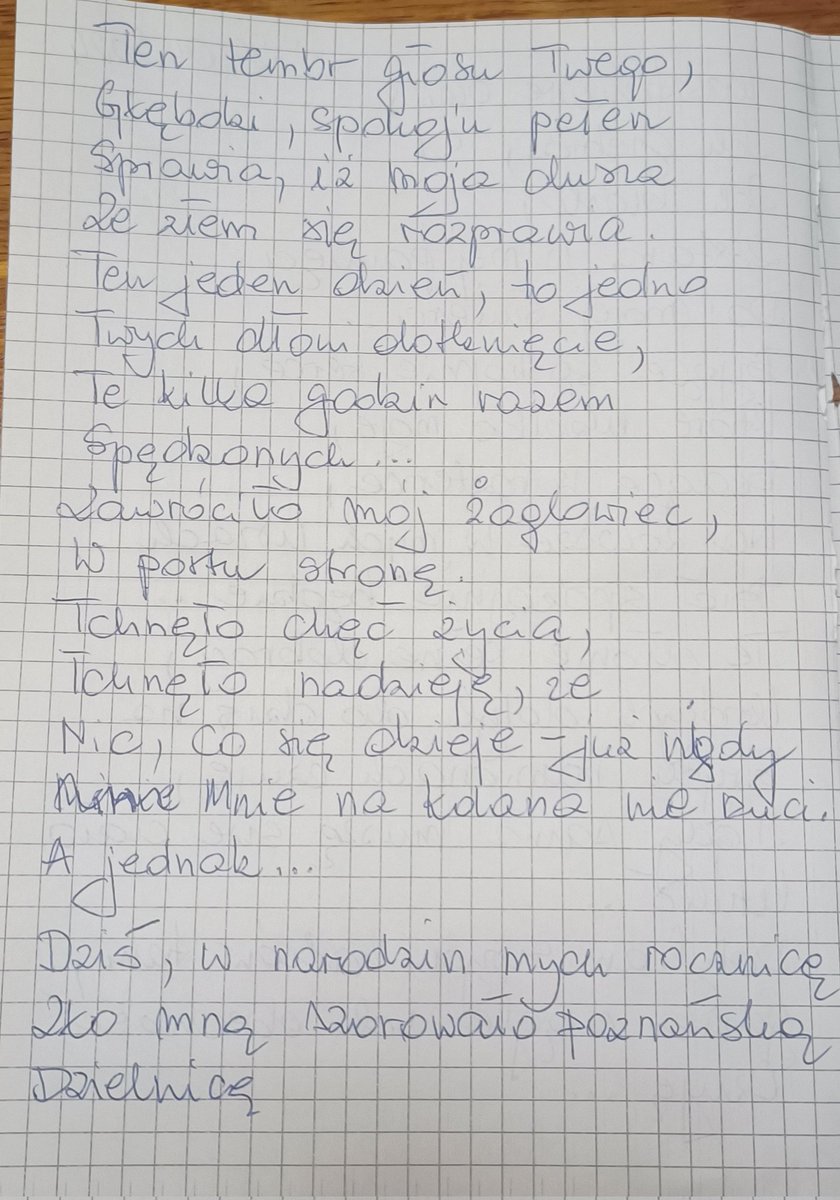 Ten tembr głosu Twego,
Głęboki, spokoju pełen
Sprawia, iż moja dusza
Ze złem się rozprawia.
Ten jeden dzień, to jedno
Twych dłoni dotknięcie,
Te kilka godzin razem
Spędzonych...
Zawróciło mój żaglowiec,
W portu stronę.
Tchnęło chęć życia,
Tchnęło nadzieję, że
Nic, co się dzieje - już nigdy
Mnie na kolana nie rzuci.
A jednak...
Dziś, w narodzin mych rocznicę
Zko mną szorowało poznańską
Dzielnicę